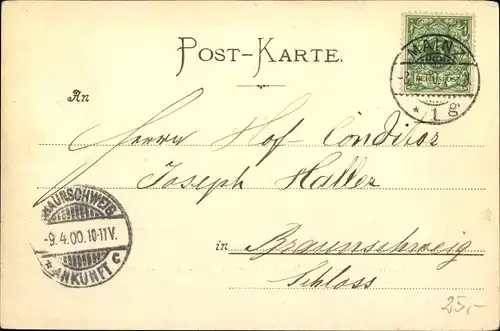 POST-KARTE.
MAINZ
REICHSPOST
* 1 g
An
Herrn Hof-Conditor
Joseph Haller
BRAUNSCHWEIG
-9.4.00.10-11V.
* ANKUNFT C
in Braunschweig
Schloss
25,-